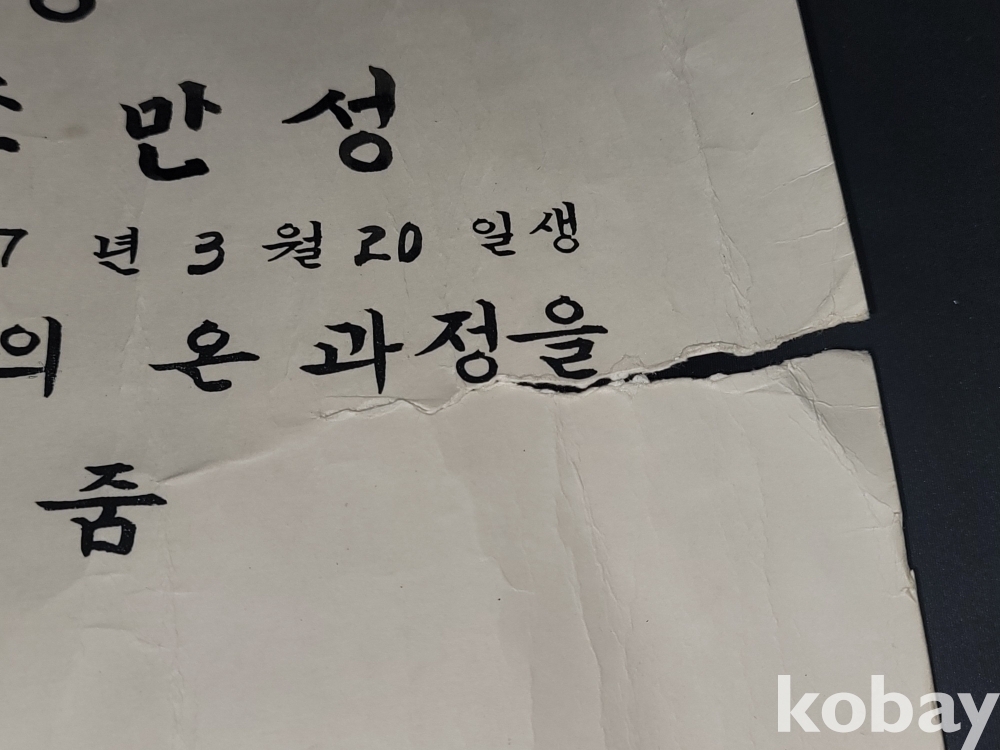 만성
7년 3월 20일생
의 온 과정을
줌
kobay